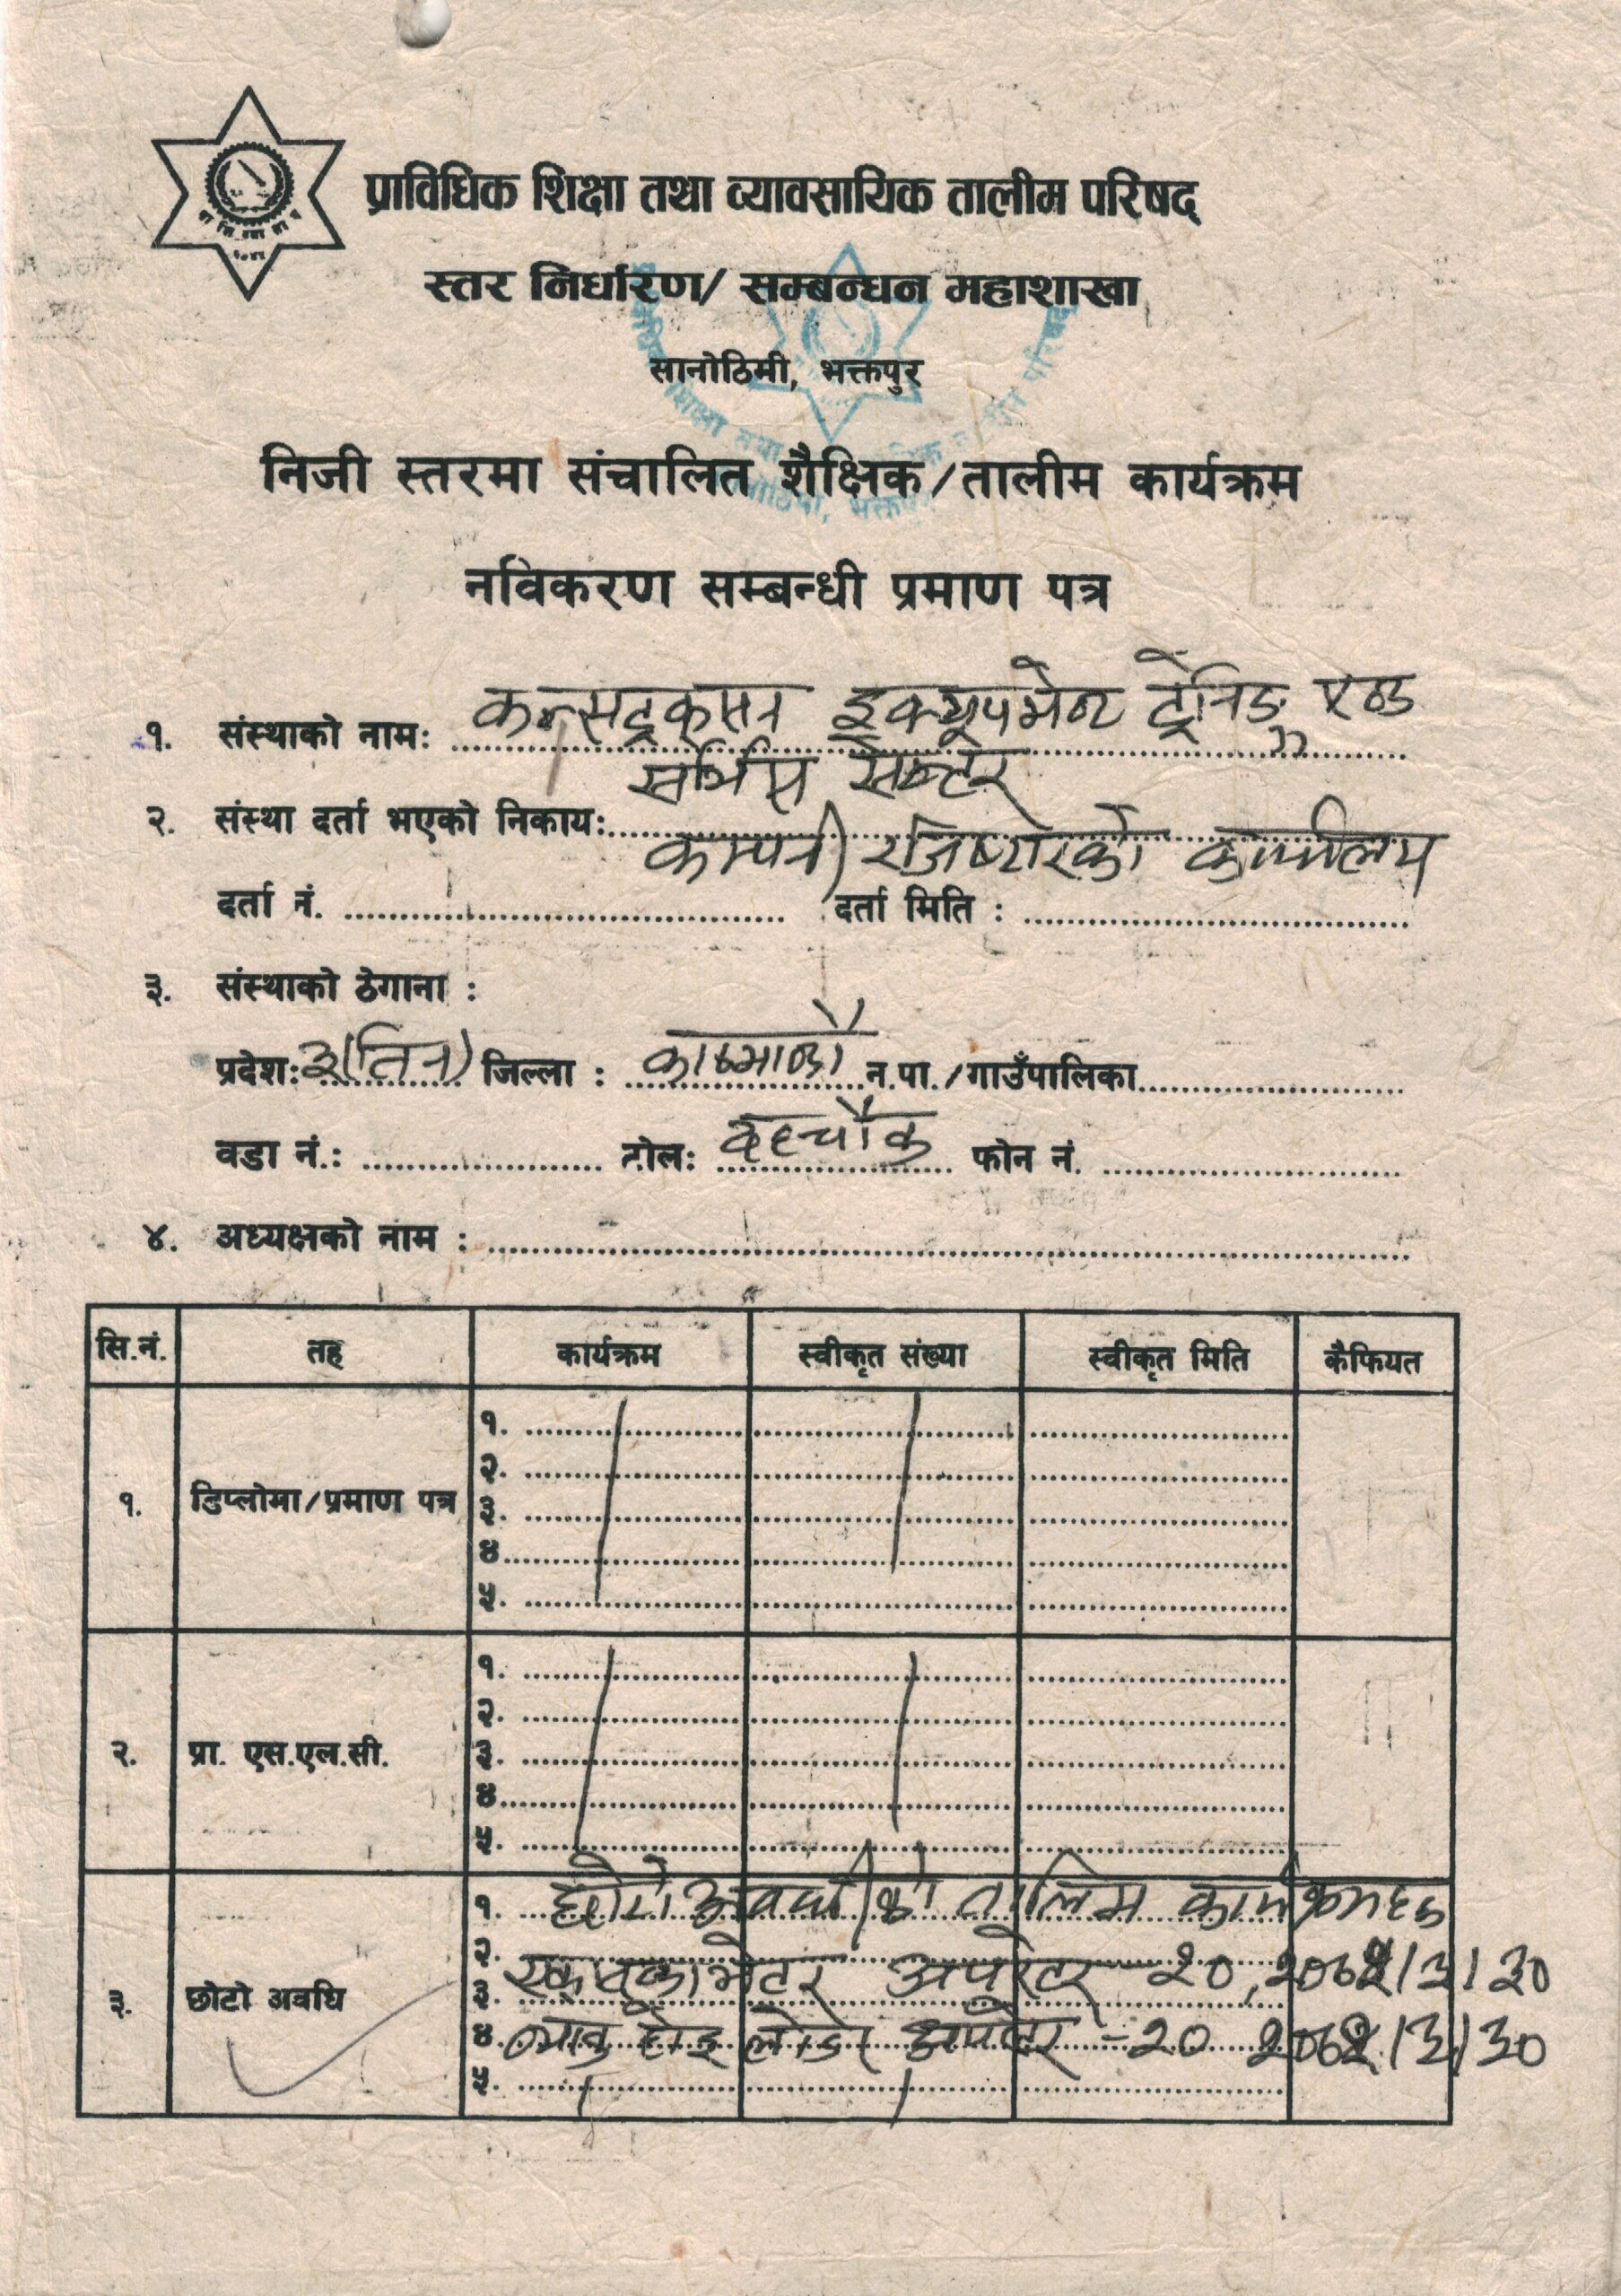 प्राविधिक शिक्षा तथा व्यावसायिक तालीम परिषद्
स्तर निर्धारण/ सम्बन्धन महाशाखा
सानोठिमी, भक्तपुर
निजी स्तरमा संचालित शैक्षिक/तालीम कार्यक्रम
नविकरण सम्बन्धी प्रमाण पत्र
१. संस्थाको नाम: कन्सट्रक्सन इक्यूपमेन्ट ट्रेनिङ्ग एण्ड
सर्भिस सेन्टर
२. संस्था दर्ता भएको निकाय:
कम्पनी रजिष्टारको कार्यालय
दर्ता नं. दर्ता मिति :
३. संस्थाको ठेगाना :
प्रदेश: ३(तिन) जिल्ला : काठमाण्डौ न.पा./गाउँपालिका
वडा नं.: टोल: दहचौक फोन नं.
४. अध्यक्षको नाम :
सि.नं. तह कार्यक्रम स्वीकृत संख्या स्वीकृत मिति कैफियत
१. डिप्लोमा/प्रमाण पत्र
१.
२.
३.
४.
५.
२. प्रा. एस.एल.सी.
१.
२.
३.
४.
५.
३. छोटो अवधि
१. छोटो अवधीको तालिम कार्यक्रमहरु
२.
३. स्काभेटर अपरेटर - २०,
४. ब्याकु होइ लोडर अपरेटर = २०
५.